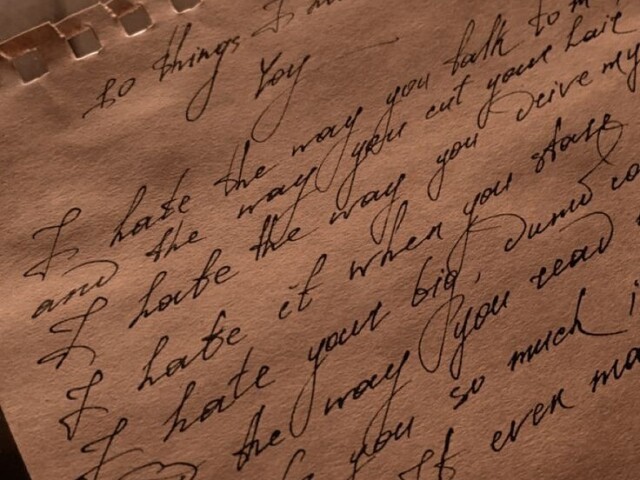 10 things I
You
I hate the way you talk to m
and the way you cut your hair
I hate the way you drive my
I hate it when you stare
I hate your big, dumb co
the way you read
you so much i
It even ma